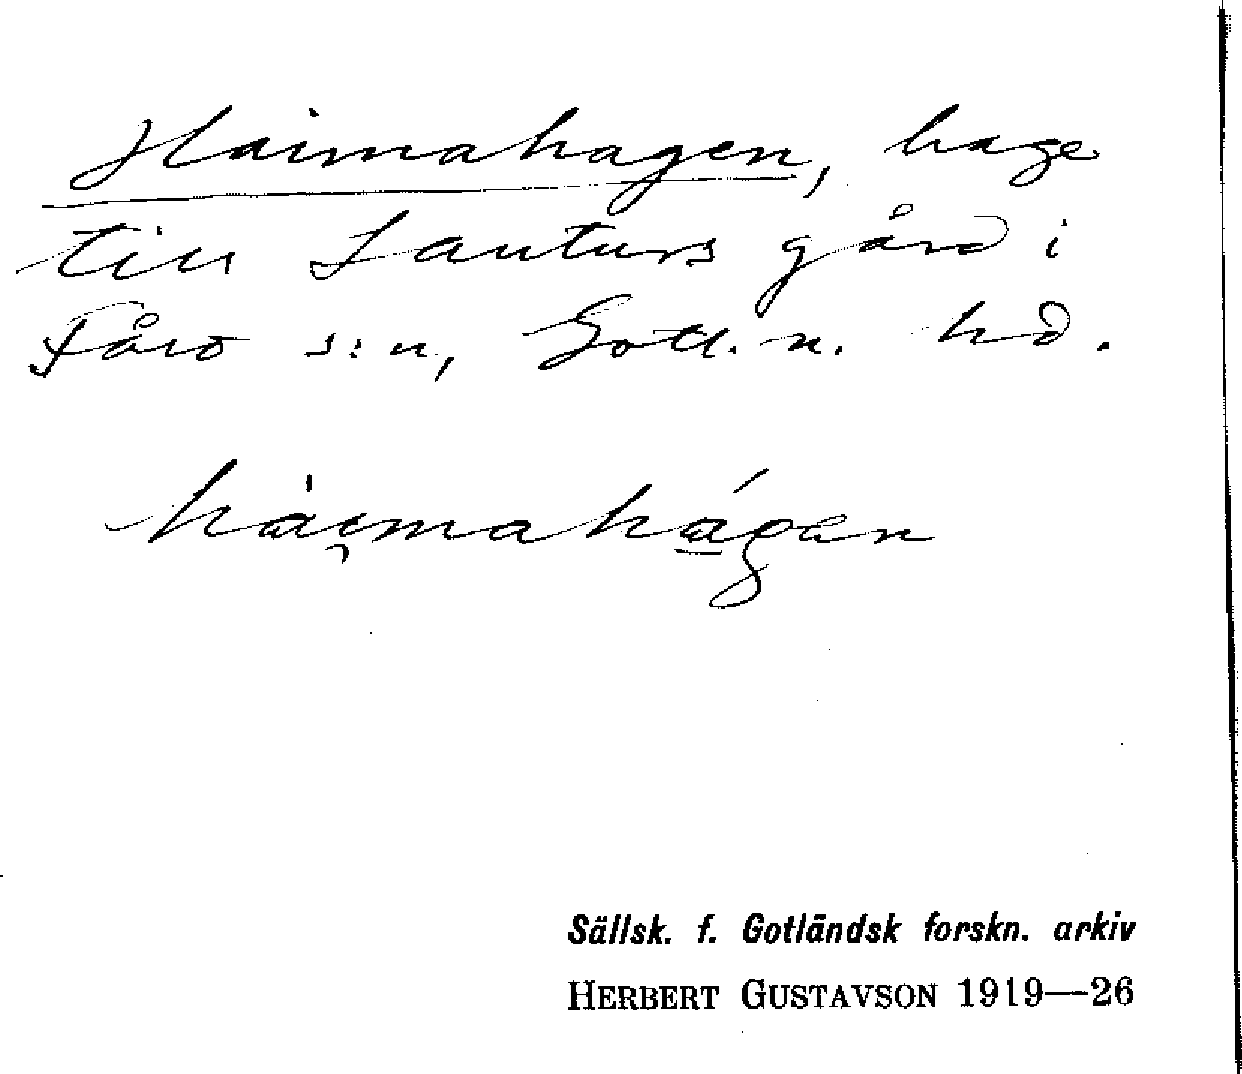 Haimahagen, hage
till Lauturs gård i
Fårö s:n, Gotl. n. hd.
hài̯mahá̲gen
Sällsk. f. Gotländsk forskn. arkiv
HERBERT GUSTAVSON 1919—26